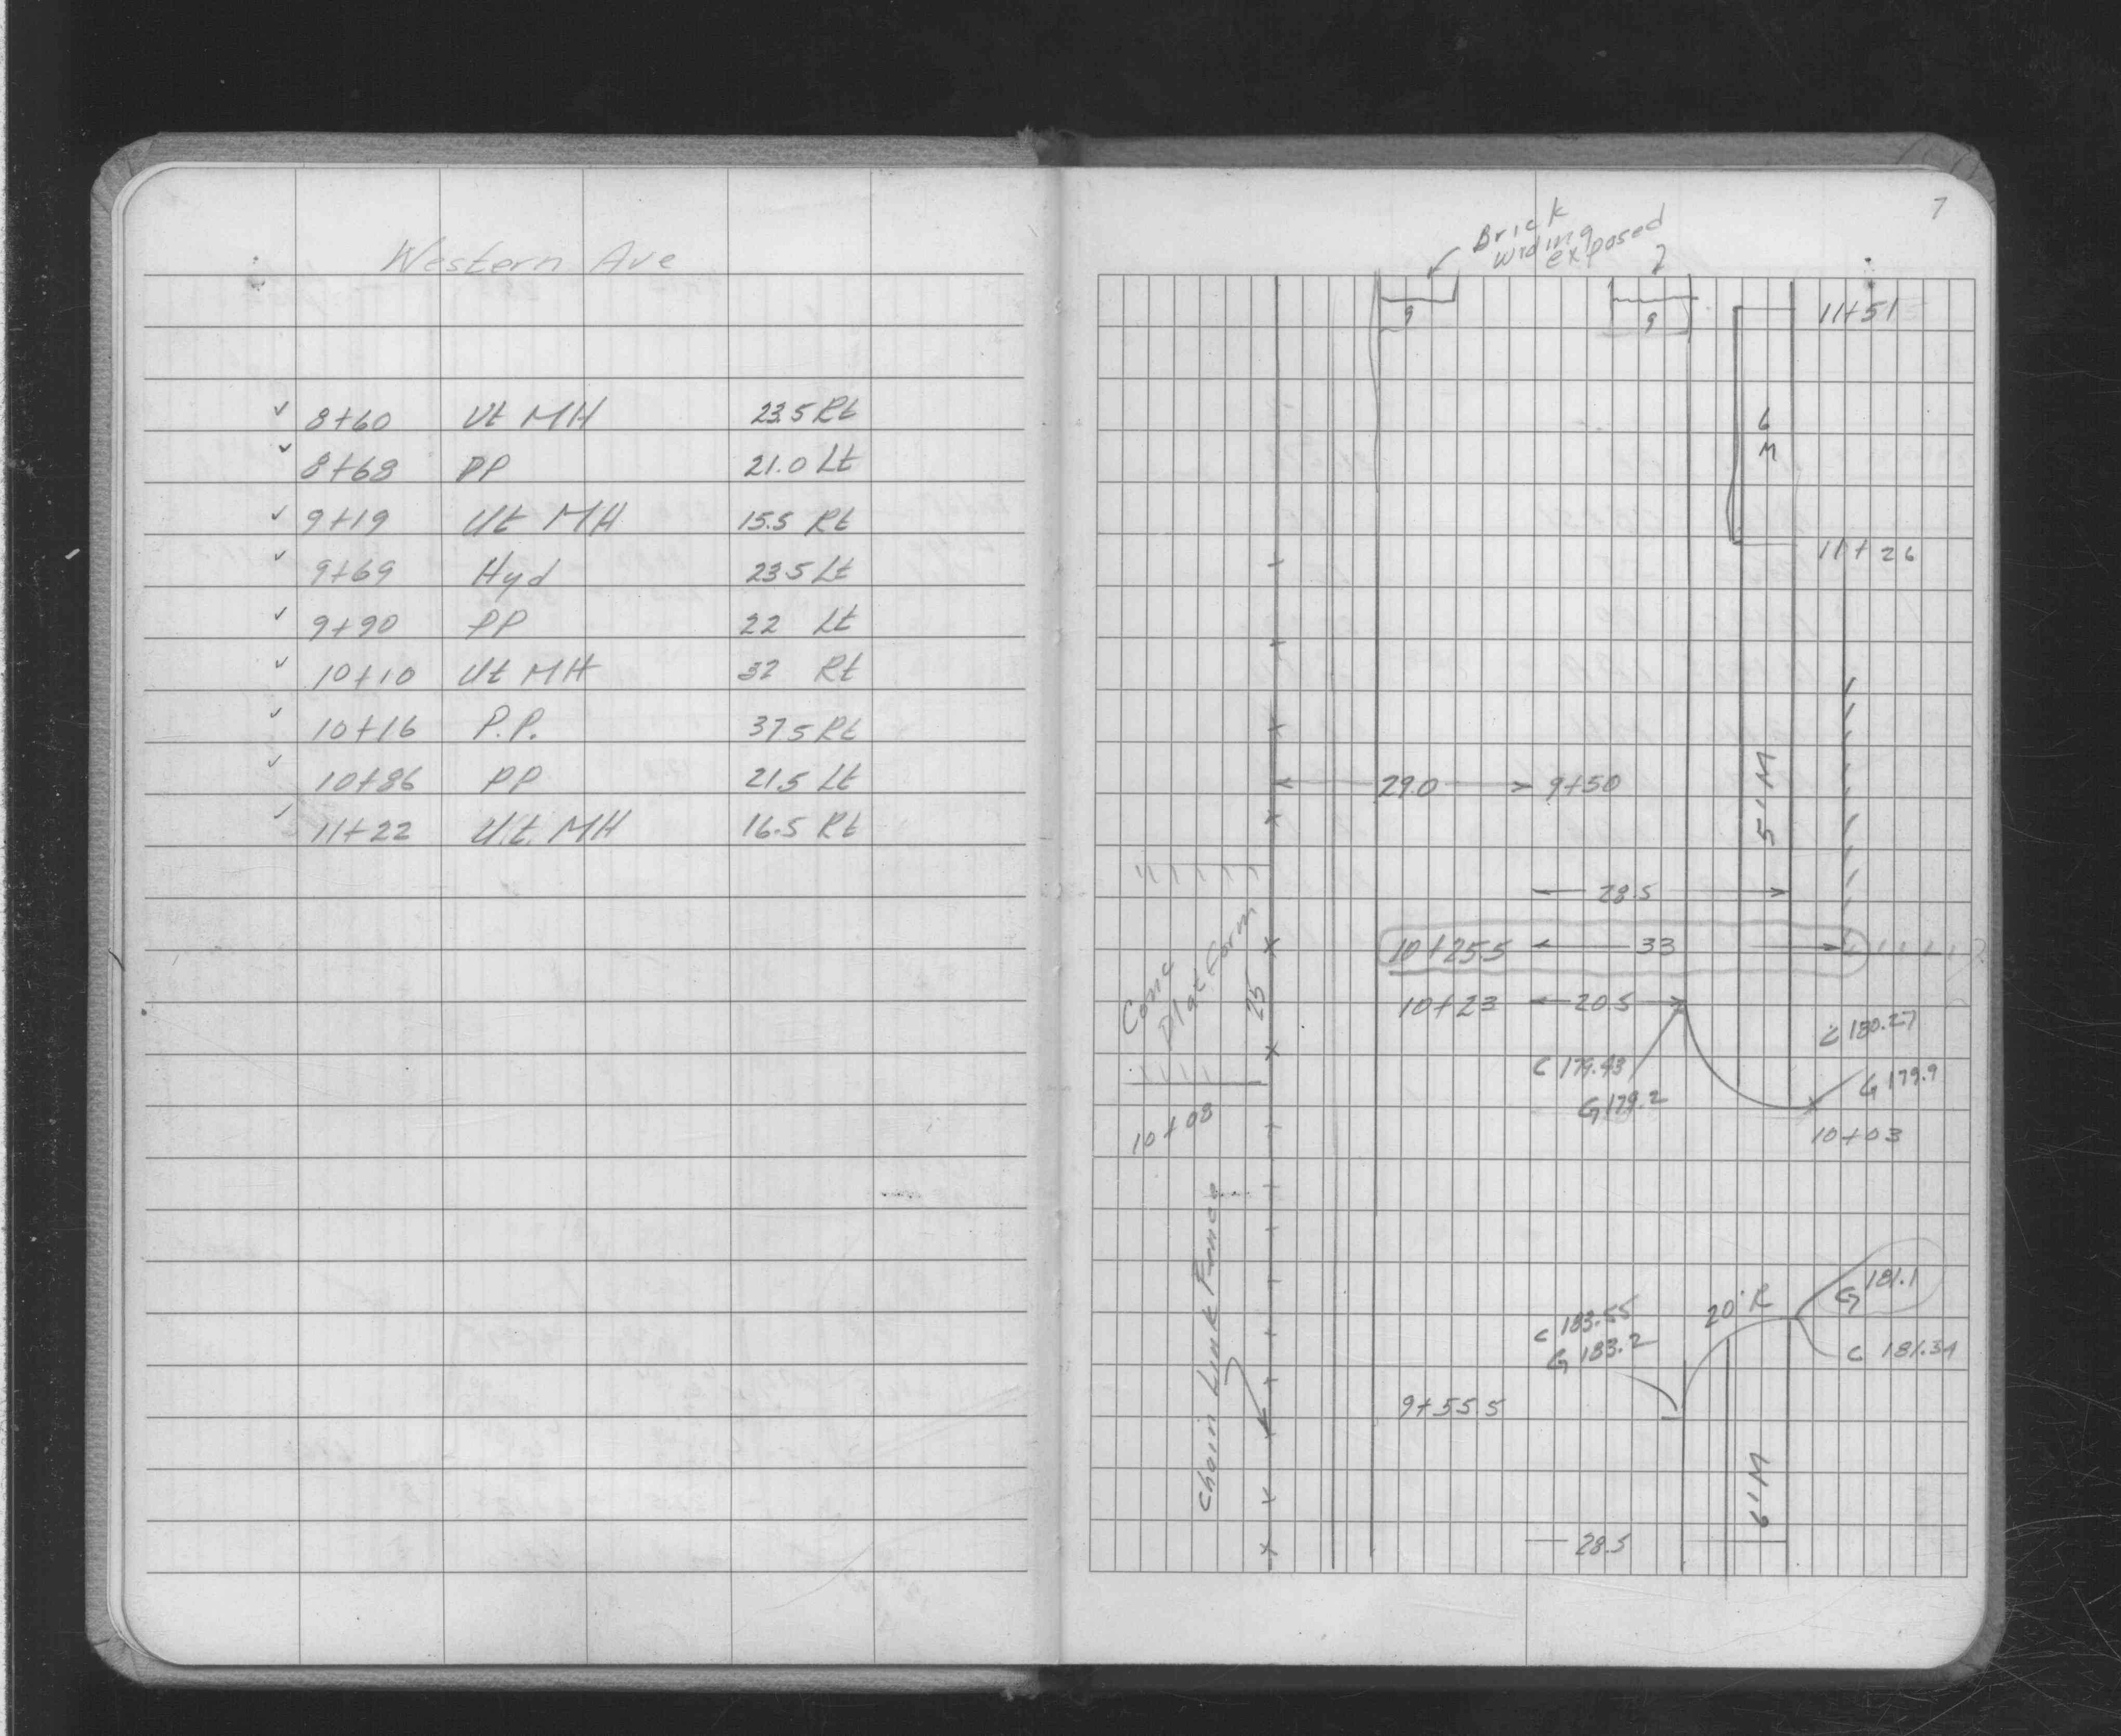 Western Ave
✓ 8+60 Ut MH 23.5 Rt
✓ 8+68 PP 21.0 Lt
✓ 9+19 Ut MH 15.5 Rt
✓ 9+69 Hyd 23.5 Lt
✓ 9+90 PP 22 Lt
✓ 10+10 Ut MH 32 Rt
✓ 10+16 P.P. 37.5 Rt
✓ 10+86 PP 21.5 Lt
✓ 11+22 Ut. MH 16.5 Rt
7
Brick
widing
exposed
9
9
11+51
6
M
11+26
29.0 9+50
5'M
28.5
10+25.5 33
Conc
Platform
25
10+23 20.5
C 180.27
C 179.43
G 179.9
G 179.2
10+08
10+03
Chain Link Fence
G 181.1
20'R
C 183.55
G 183.2
C 181.34
9+55.5
6'M
28.5